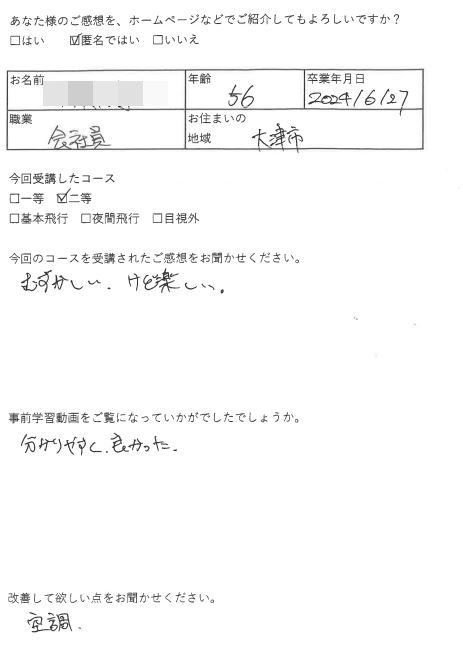 あなた様のご感想を、ホームページなどでご紹介してもよろしいですか？
□はい ☑匿名ではい □いいえ
お名前 年齢 56 卒業年月日 2024/6/27
職業 会社員 お住まいの地域 大津市
今回受講したコース
□一等 ☑二等
□基本飛行 □夜間飛行 □目視外
今回のコースを受講されたご感想をお聞かせください。
むずかしい、けど楽しい。
事前学習動画をご覧になっていかがでしたでしょうか。
分かりやすく、良かった。
改善して欲しい点をお聞かせください。
空調。